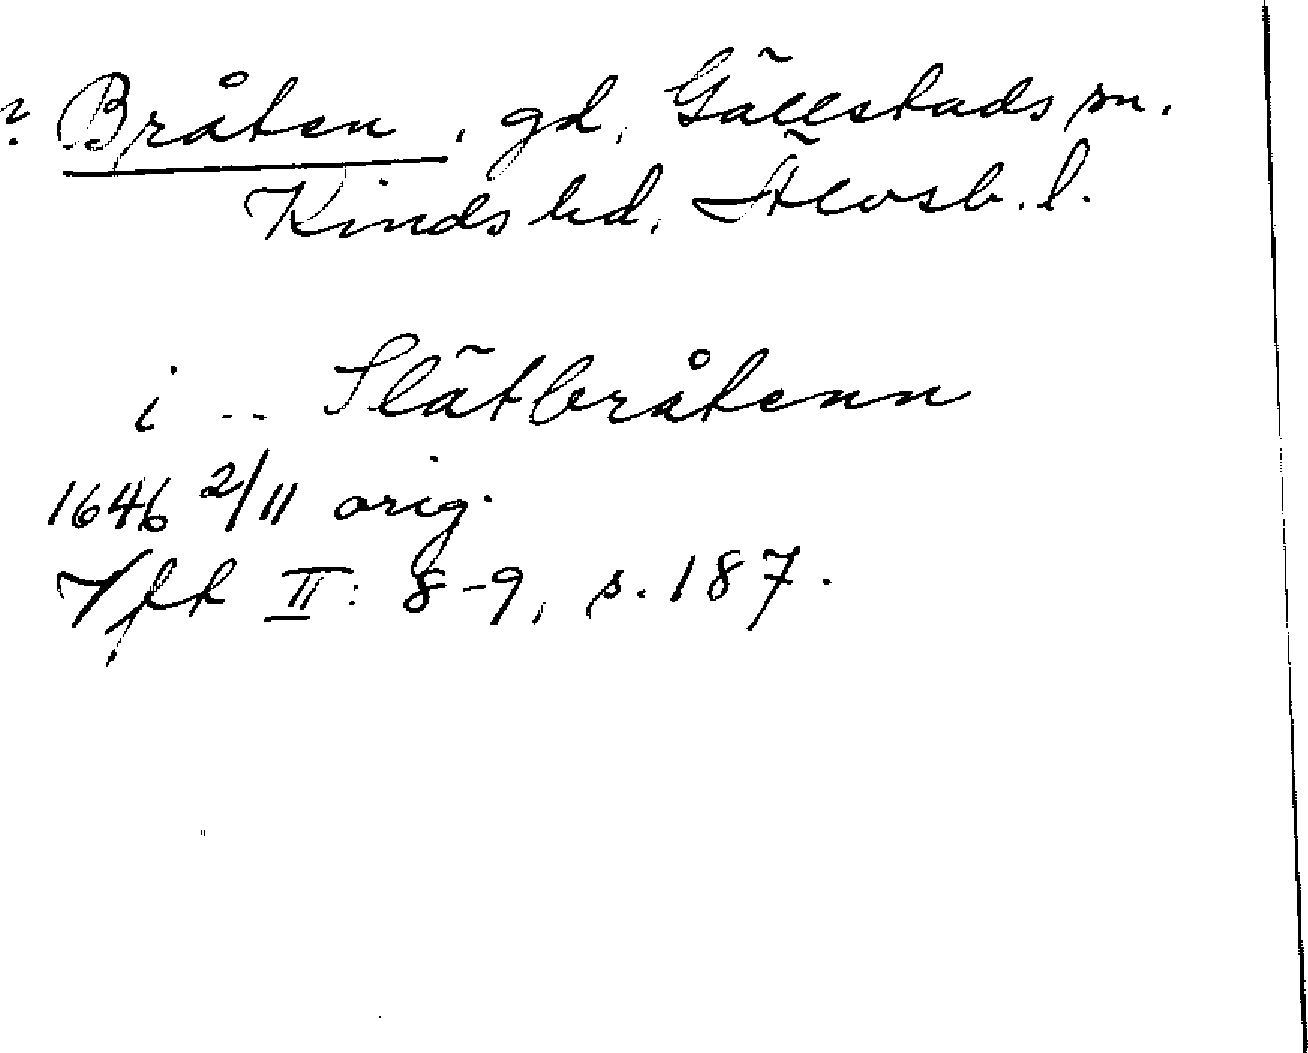 ? Bråten, gd, Gällstads sn.
Kinds hd, Älvsb. l.
i -- Slätbråtenn
1646 2/11 orig.
Vft II: 8-9, s. 187.